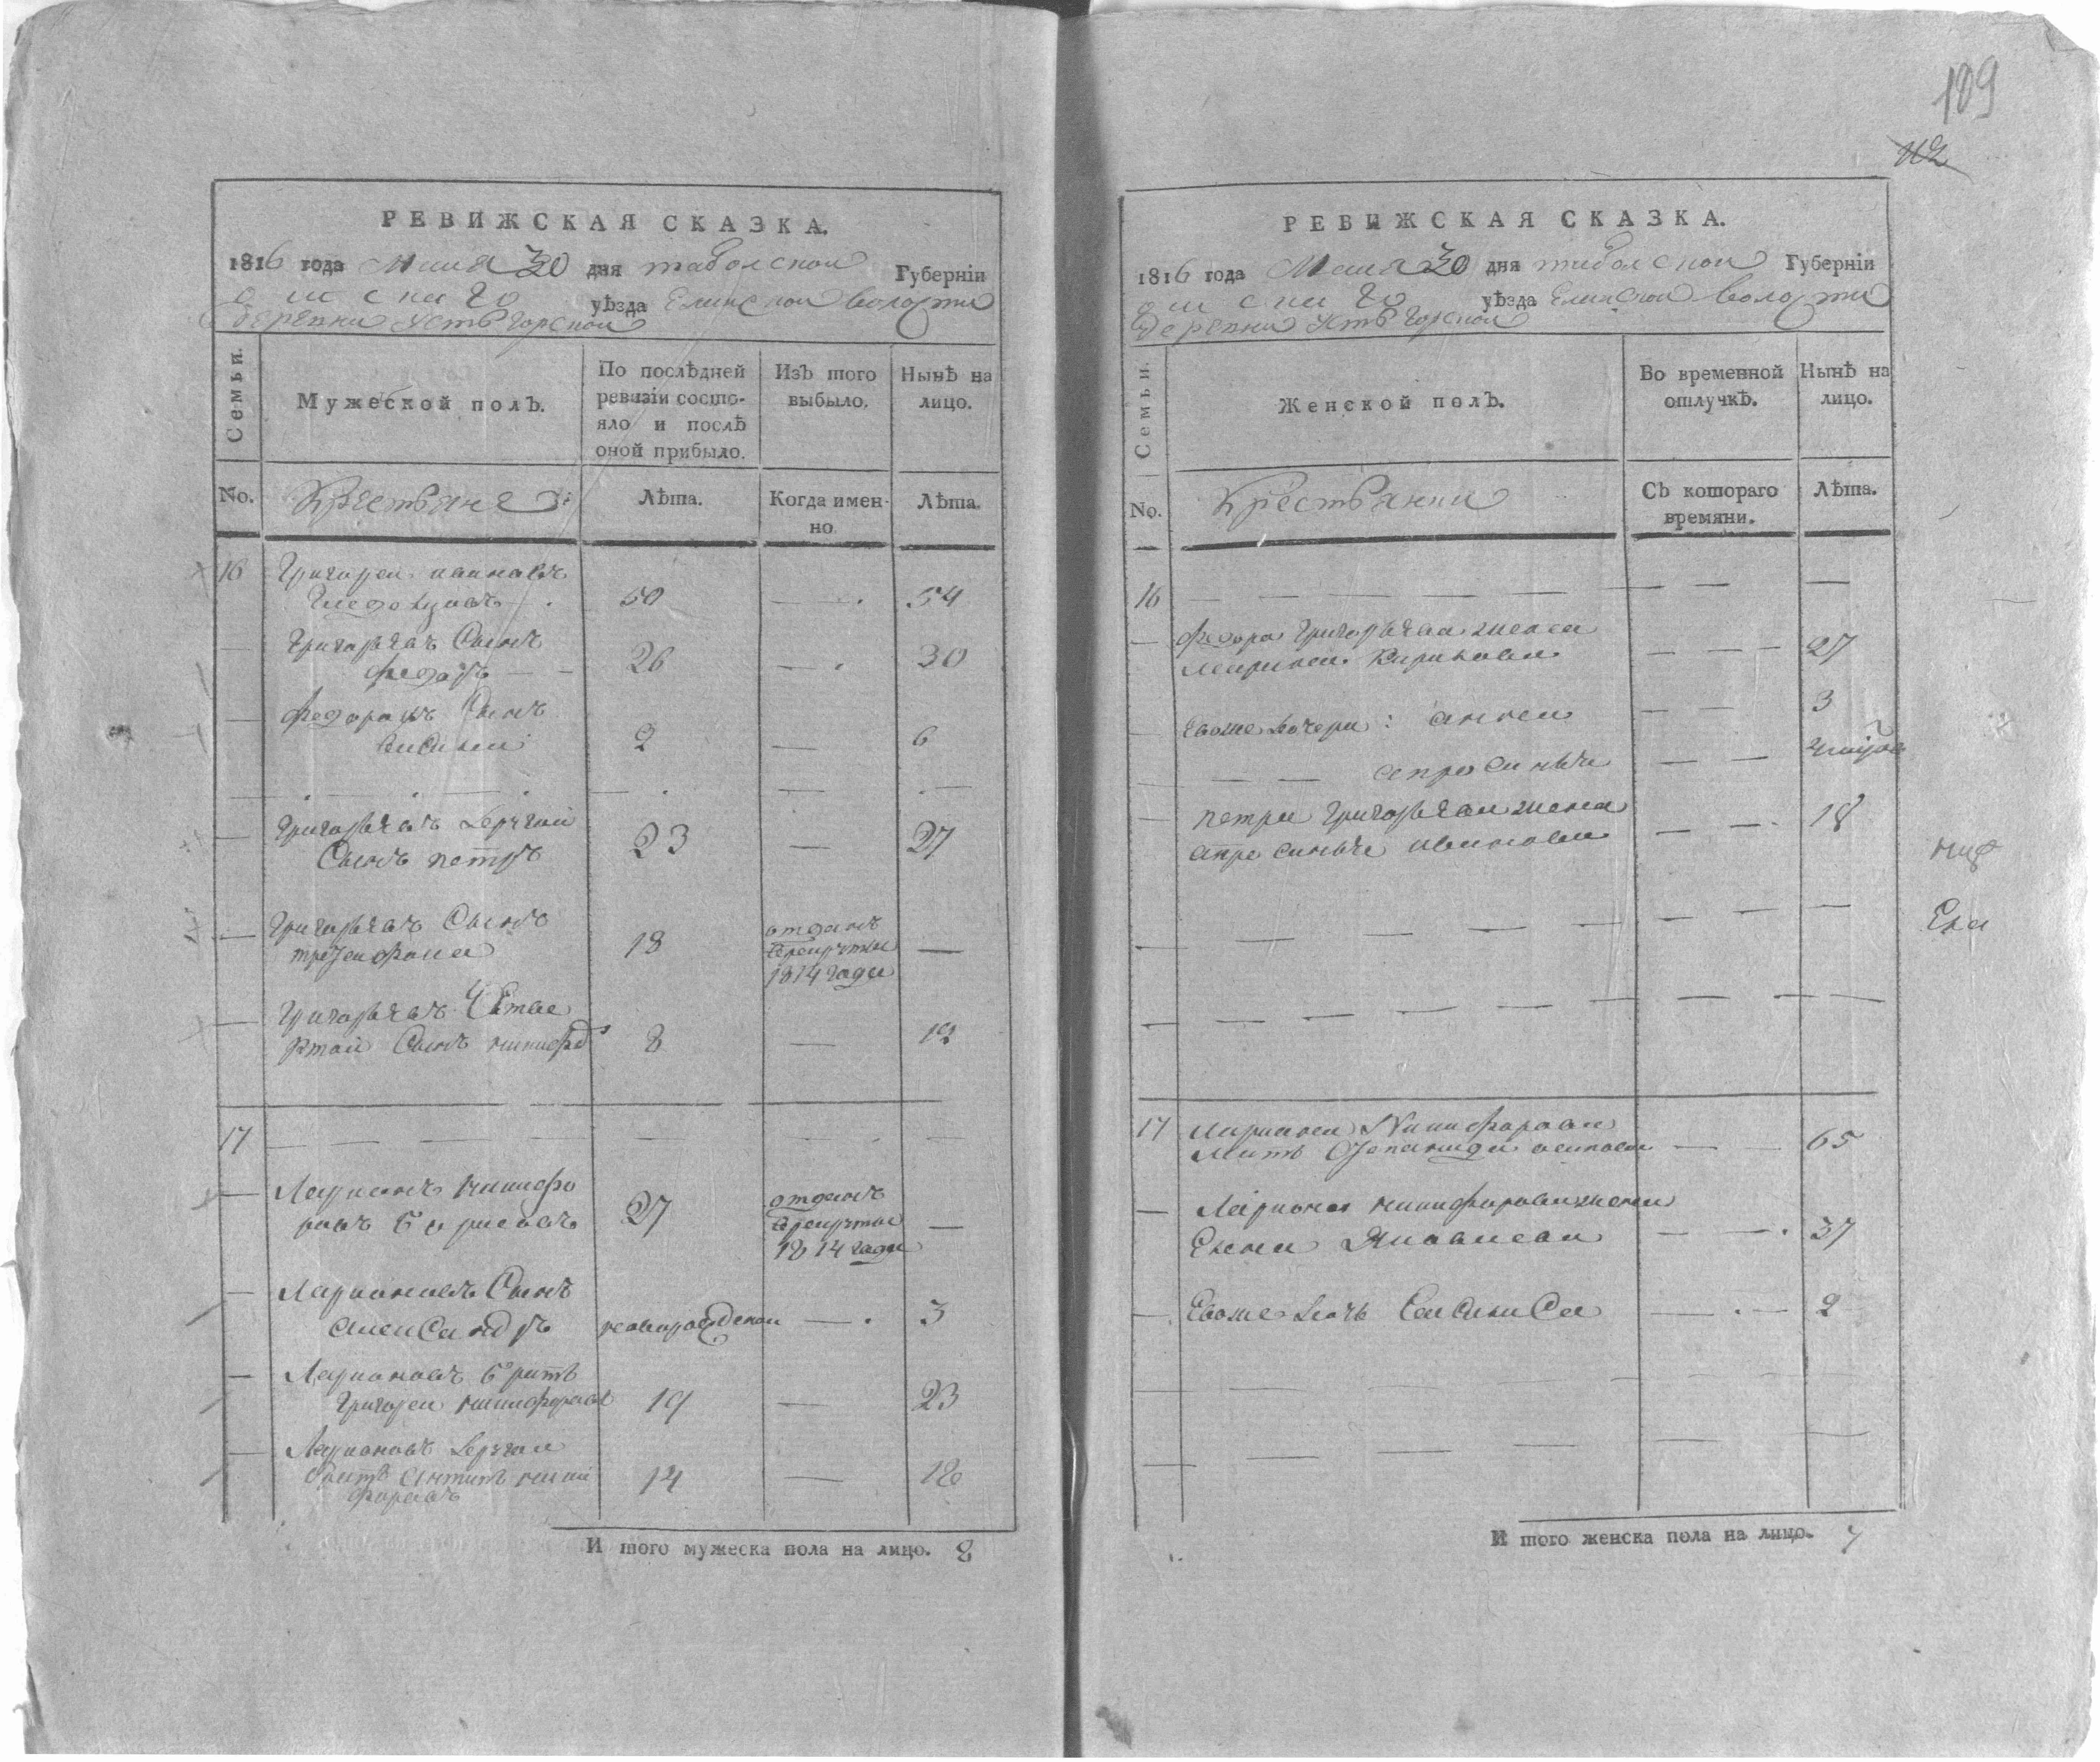 109
112
РЕВИЖСКАЯ СКАЗКА.
1816 года Маия 30 дня таболской Губерніи
омскаго уѣзда Еланской волости
деревни Усть Горской
Семьи.
Мужеской полЪ.
По послѣдней
ревизіи состо-
яло и послѣ
оной прибыло.
ИзЪ того
выбыло.
НынѢ на
лицо.
No.
Крестьяне
Лѣта.
Когда имен-
но.
Лѣта.
16 Григореи
50 — 54
Григорьевъ Сынъ
Федоръ 26 — 30
Федоровъ Сынъ
Василеи 2 — 6
Григорьевъ другой
Сынъ петръ 23 — 27
Григорьевъ Сынъ
18 отданъ
в рекруты
1814 года
Григорьевъ Четве
ртой Сынъ никифоръ 8 — 12
17
Ларионъ никифо
ровъ Борисовъ 27 отданъ
в рекруты
1814 года
Ларионовъ Сынъ
александръ новорожденои — 3
Ларионовъ братъ
Григореи никифоровъ 19 — 23
Ларионовъ другои
братъ антипъ ники
форовъ 14 — 18
И того мужеска пола на лицо. 8
РЕВИЖСКАЯ СКАЗКА.
1816 года Маия 30 дня таболской Губерніи
омскаго уѣзда Еланской волости
деревни Усть Горской
Семьи.
Женской полЪ.
Во временной
отлучкѢ.
НынѢ на
лицо.
No.
Крестьянки
СЬ котораго
времяни.
Лѣта.
16
Федора Григорьева жена
марина 27
Евоже дочери: анна 3
апросинья
петра Григорьева жена
апросинья иванова 18
17 Лариона Никифорова
Мать 65
Лариона никифорова жена
Елена 37
Евоже дочь Василиса 2
И того женска пола на лицо. 7
ник
Ела